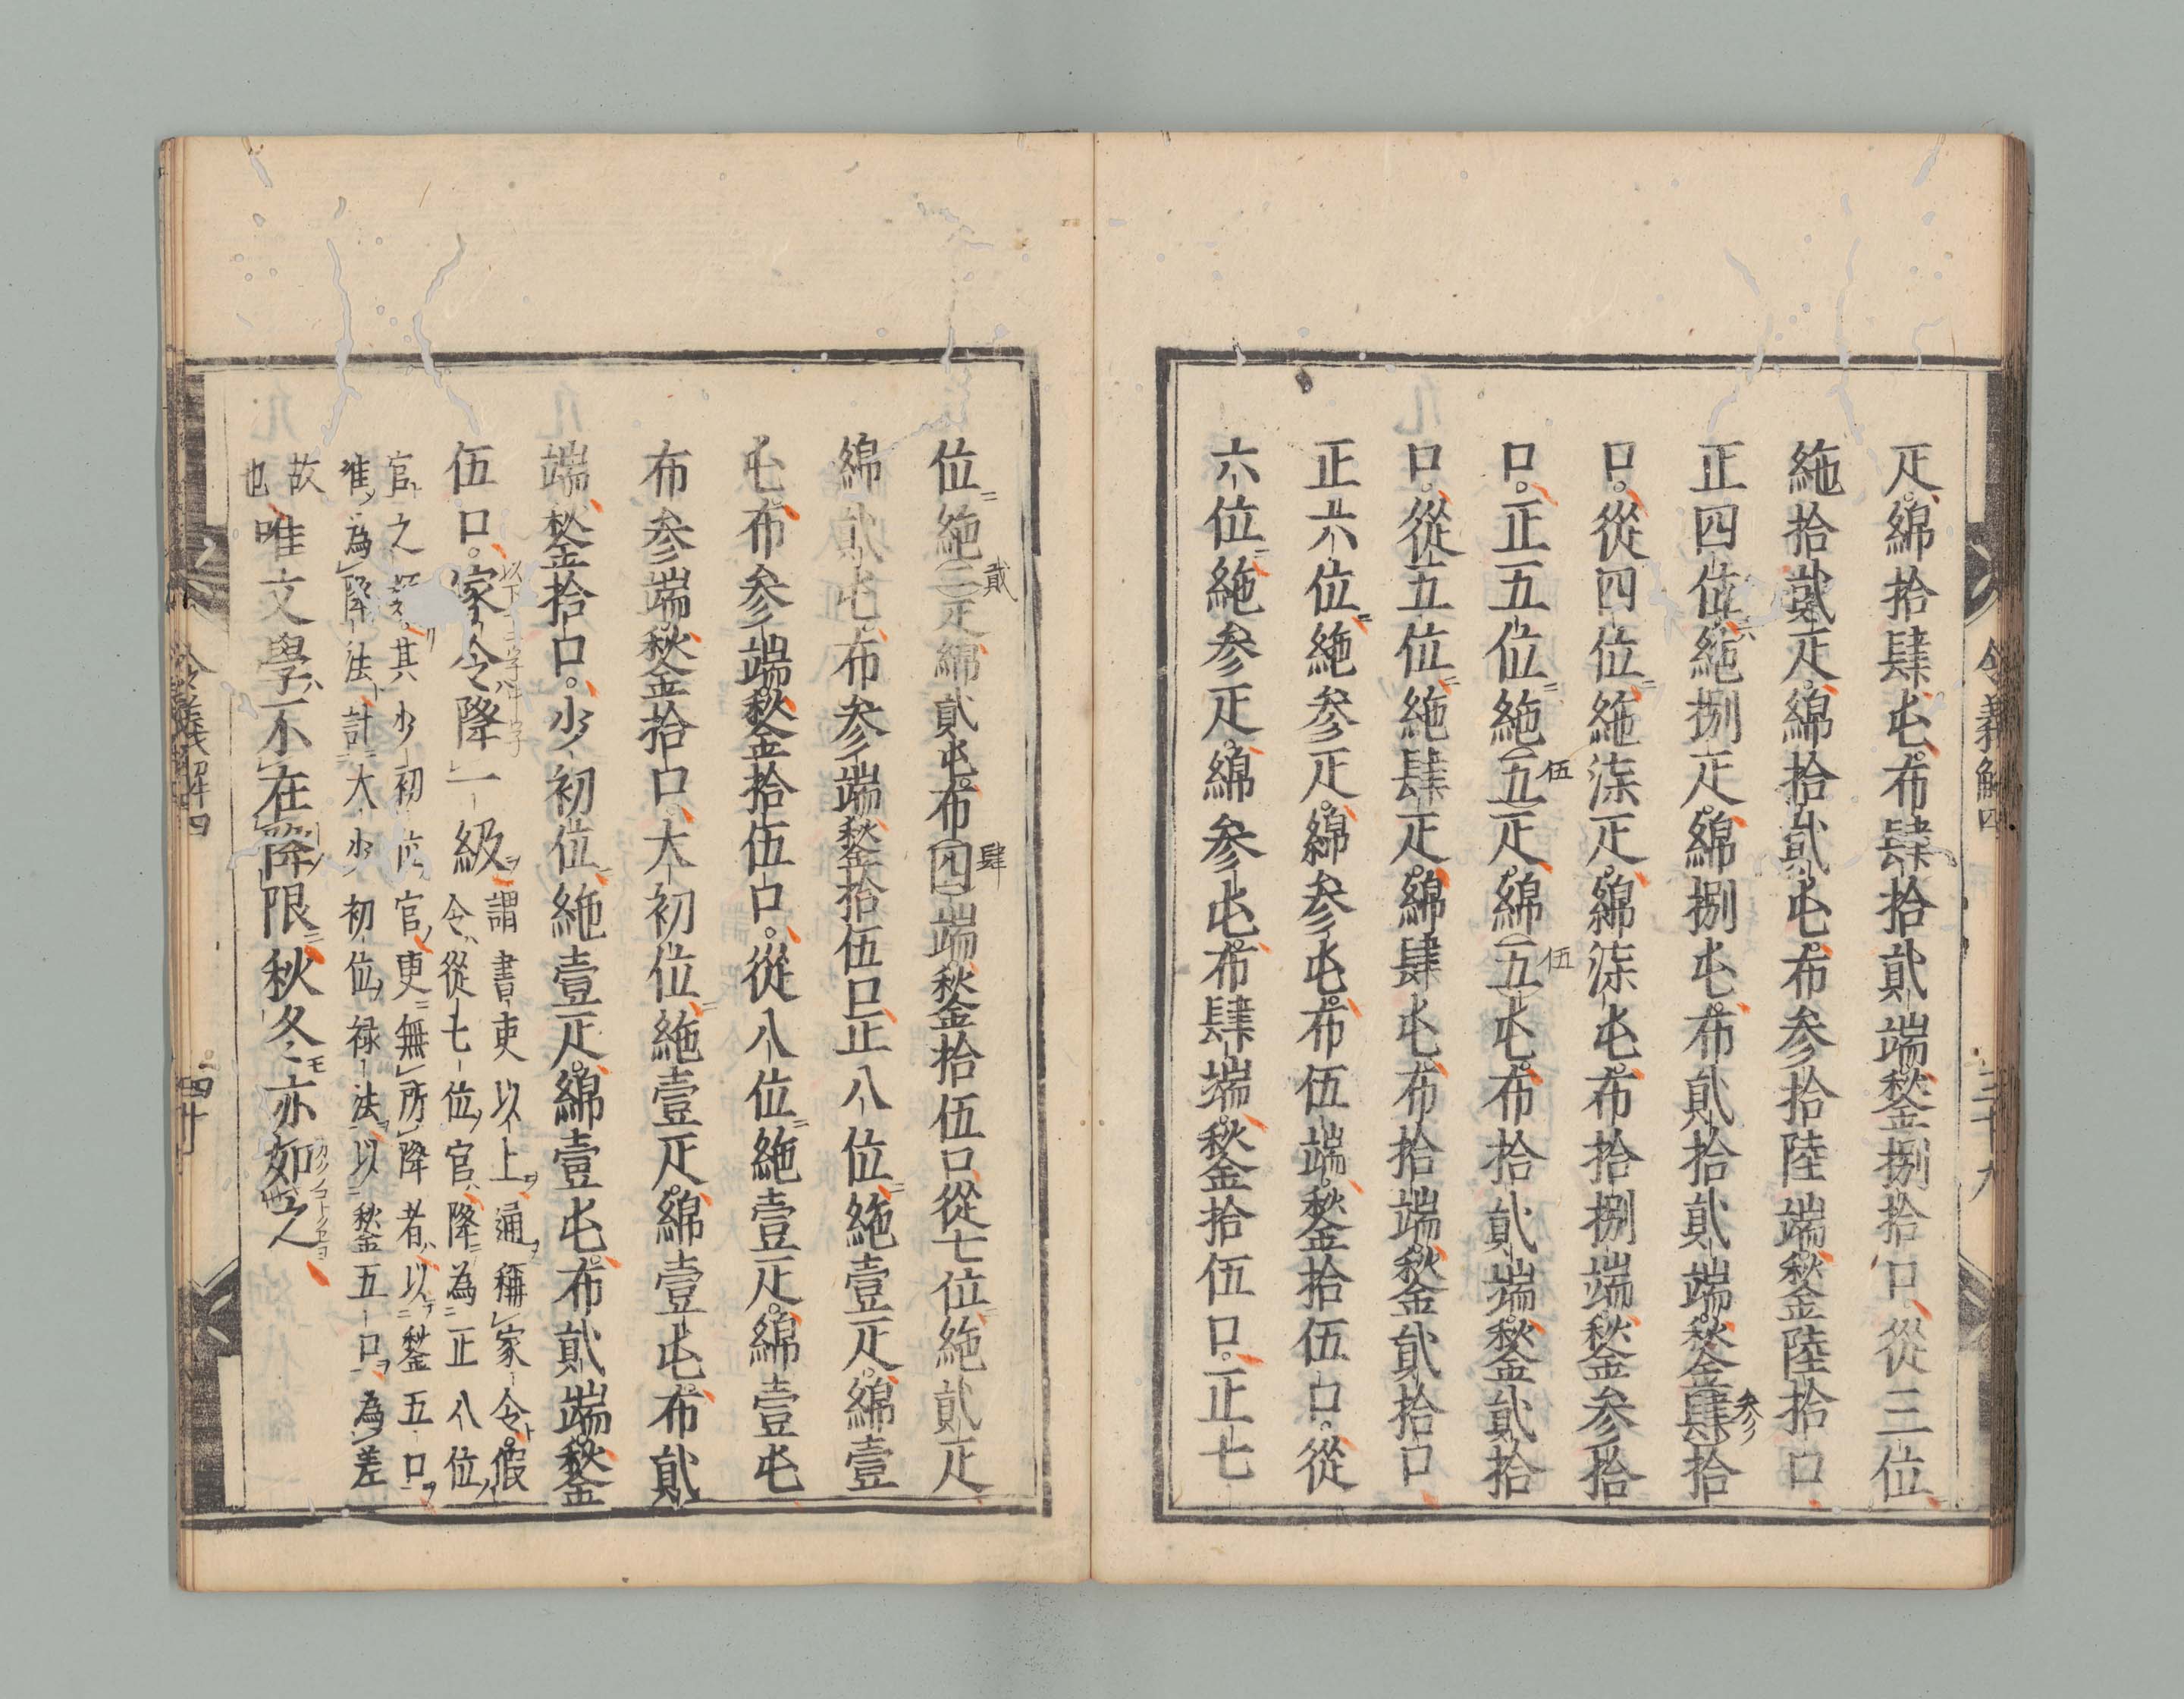 令義解四
三十九
疋。綿拾肆屯。布肆拾貳端。鍫捌拾口。從三位
絁拾貳疋。綿拾貳屯。布参拾陸端。鍫陸拾口
正四位絁捌疋。綿捌屯。布貳拾貳端。鍫肆拾
参
口。從四位絁柒疋。綿柒屯。布拾捌端。鍫参拾
口。正五位絁五疋。綿五屯。布拾貳端。鍫貳拾
伍
伍
口。從五位絁肆疋。綿肆屯。布拾端。鍫貳拾口
正六位絁参疋。綿参屯。布伍端。鍫拾伍口。從
六位絁参疋。綿参屯。布肆端。鍫拾伍口。正七
位絁二疋綿貳屯。布四端。鍫拾伍口從七位絁貳疋
貳
肆
綿貳屯。布参端鍫拾伍口正八位絁壹疋。綿壹
屯。布参端。鍫拾伍口。從八位絁壹疋。綿壹屯
布参端。鍫拾口。大初位絁壹疋。綿壹屯。布貳
端鍫拾口。少初位絁壹疋。綿壹屯。布貳端。鍫
伍口。家令降一級
謂書吏以上通稱家令。假
令從七位官降為正八位
官之類。其少初位官吏無所降者以鍫五口
准為降法計大少初位禄法以鍫五口為差
故
也
唯文學不在降限秋冬亦如之
令義解四
四十